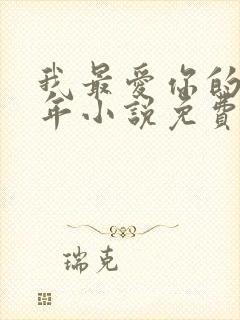 我最爱你的
年小說免費
瑞克